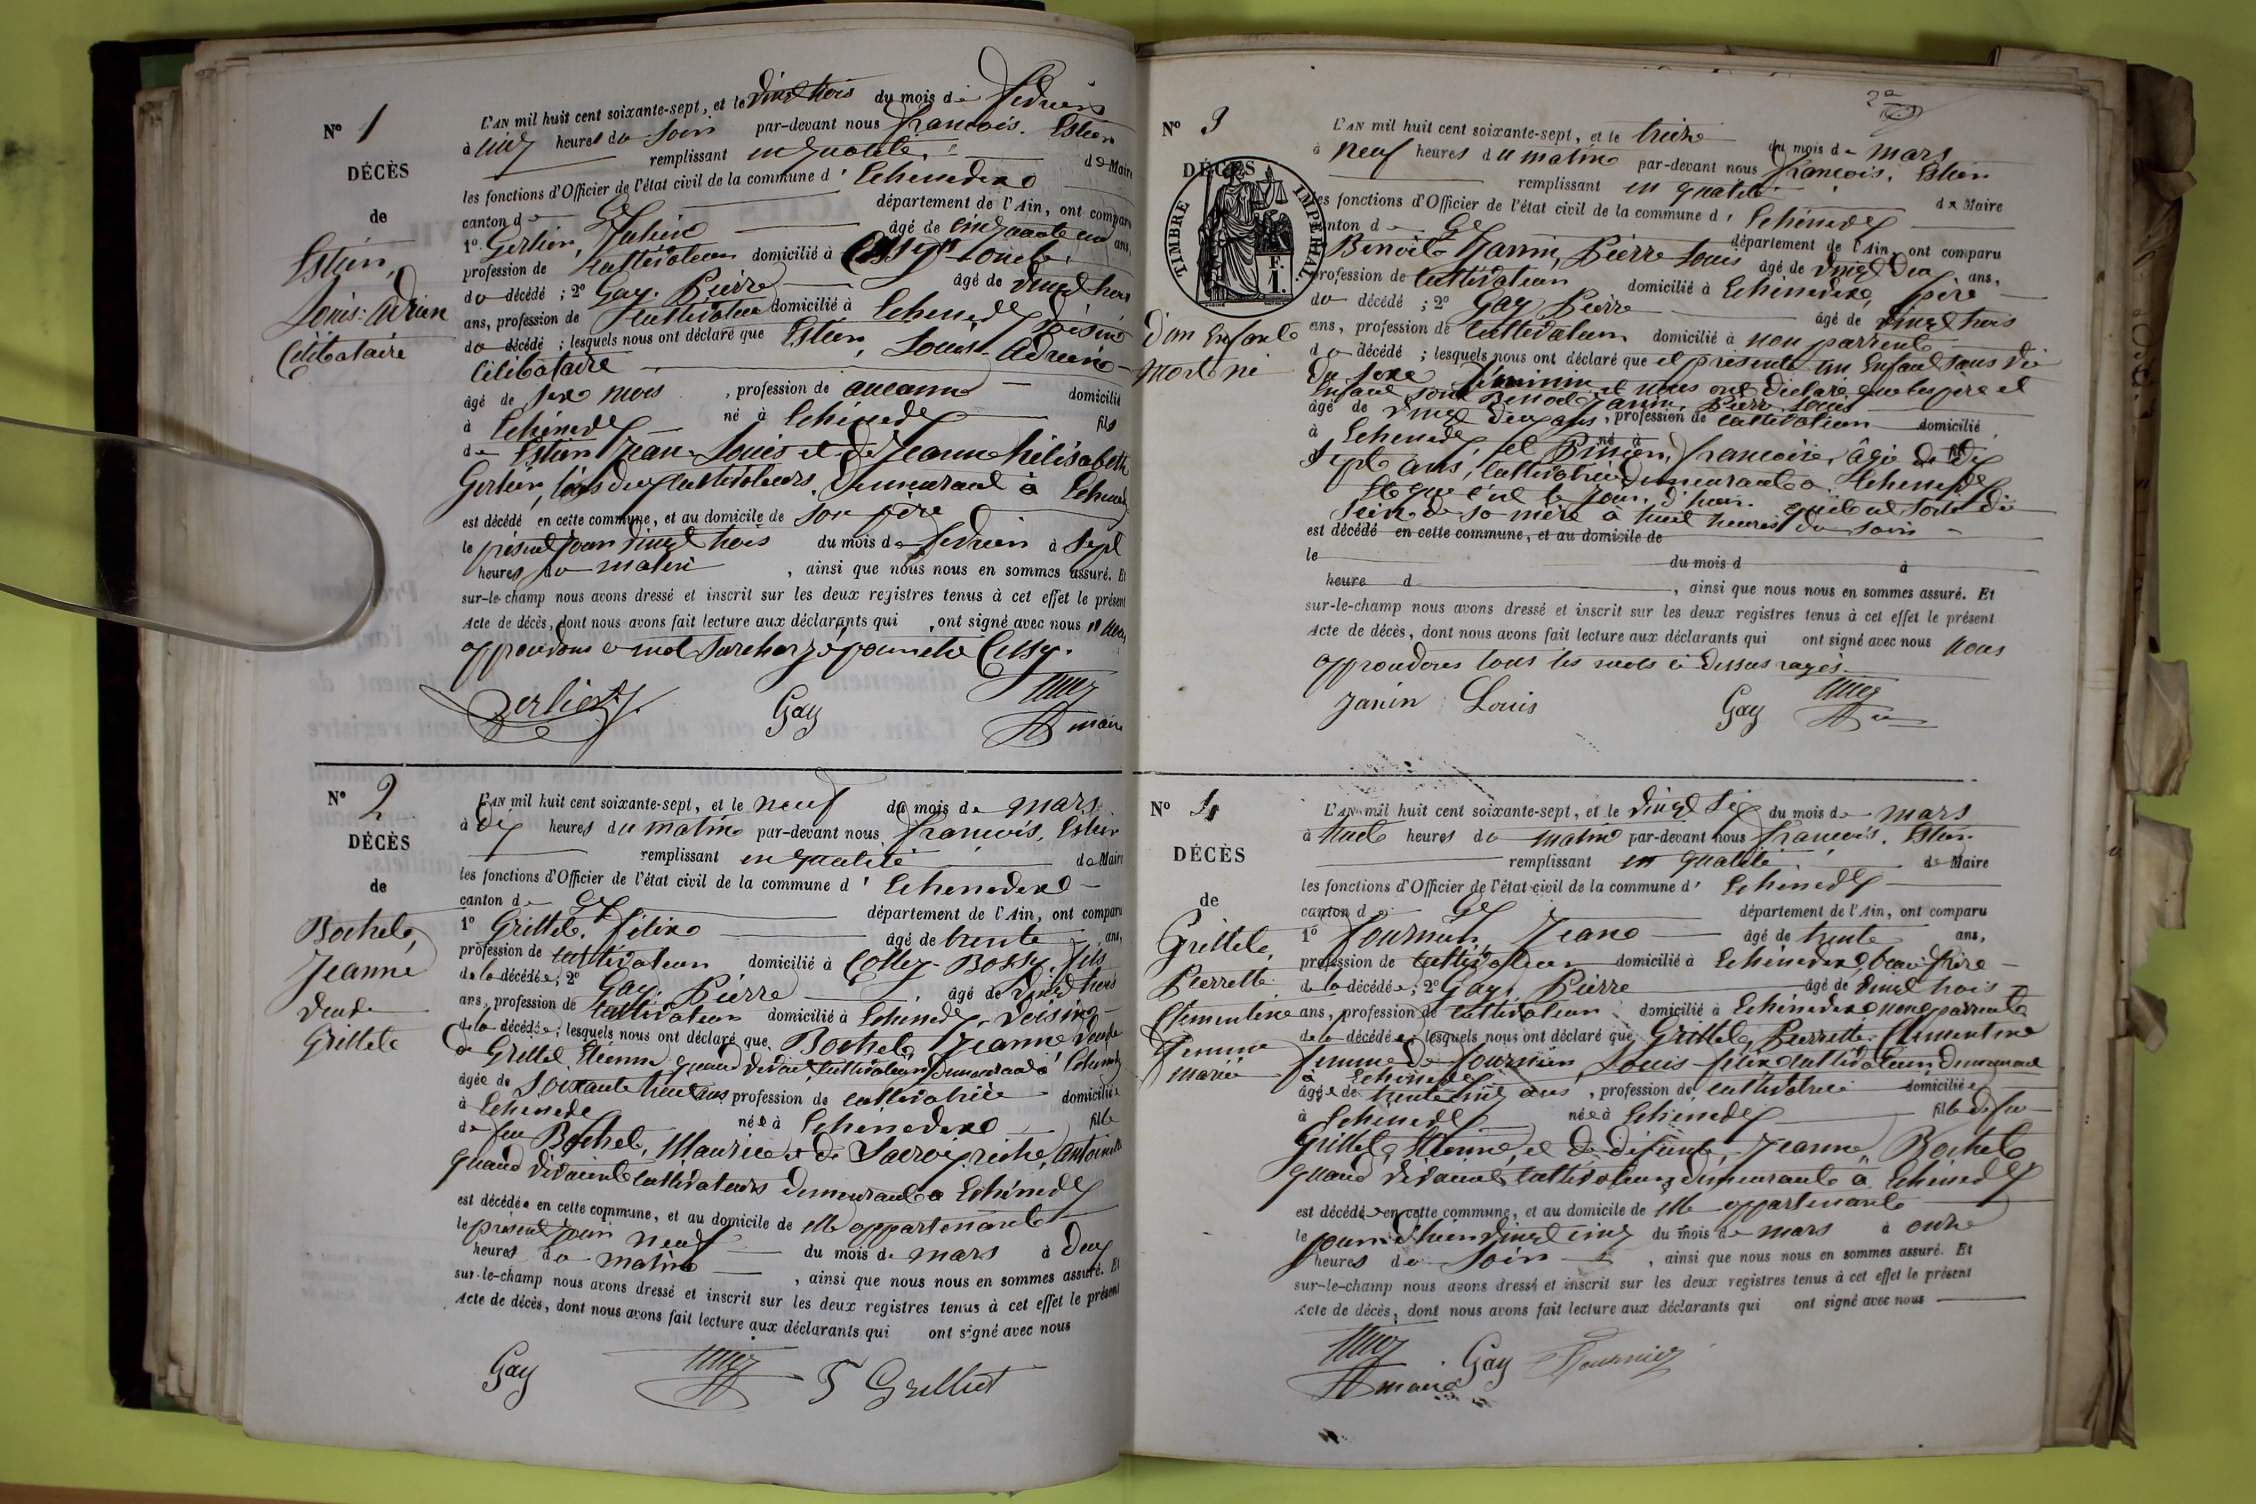 N° 1
DÉCÈS
de
Estier,
Louis Adrien
Célibataire
L'AN mil huit cent soixante-sept, et le vingt trois du mois de février
à cinq heures du soir par-devant nous François Estier
remplissant en qualité de Maire
les fonctions d'Officier de l'état civil de la commune d' Echenevex
canton de Gex département de l'Ain, ont comparu
1° Gerlier, Julien âgé de cinquante un ans,
profession de cultivateur domicilié à Cessy oncle
du décédé ; 2° Gay Pierre âgé de vingt trois
ans, profession de cultivateur domicilié à Echenevex voisin
du décédé ; lesquels nous ont déclaré que Estier, Louis Adrien
célibataire
âgé de six mois , profession de aucune domicilié
à Echenevex né à Echenevex fils
de Estier Jean Louis et de Jeanne hélisabeth
Gerlier, tous deux cultivateurs, demeurant à Echenevex
est décédé en cette commune, et au domicile de son père
le présent jour vingt trois du mois de février à sept
heures du matin , ainsi que nous nous en sommes assuré. Et
sur-le-champ nous avons dressé et inscrit sur les deux registres tenus à cet effet le présent
Acte de décès, dont nous avons fait lecture aux déclarants qui ont signé avec nous
approuvons le mot surchargé Cessy.
Gerlier J.
Gay
maire
N° 2
DÉCÈS
de
Bochet,
Jeanne
veuve
Grillet
L'AN mil huit cent soixante-sept, et le neuf du mois de mars
à dix heures du matin par-devant nous François, Estier
remplissant en qualité de Maire
les fonctions d'Officier de l'état civil de la commune d' Echenevex
canton de Gex département de l'Ain, ont comparu
1° Grillet, félix âgé de trente ans,
profession de cultivateur domicilié à Collex-Bossy, fils
de la décédée ; 2° Gay, Pierre âgé de vingt trois
ans, profession de cultivateur domicilié à Echenevex, voisin
de la décédée ; lesquels nous ont déclaré que Bochet Jeanne veuve
de Grillet Etienne quand vivait cultivateur demeurant à Echenevex
âgée de soixante huit ans profession de cultivatrice domiciliée
à Echenevex née à Echenevex fille
de feu Bochet, Maurice et de Antoinette
quand vivaient cultivateurs demeurant à Echenevex
est décédée en cette commune, et au domicile de elle appartenant
le présent jour neuf du mois de mars à deux
heures du matin , ainsi que nous nous en sommes assuré. Et
sur-le-champ nous avons dressé et inscrit sur les deux registres tenus à cet effet le présent
Acte de décès, dont nous avons fait lecture aux déclarants qui ont signé avec nous
Gay
F Grilliet
N° 3
DÉCÈS
TIMBRE IMPÉRIAL
F.
1.
d'un Enfant
mort né
L'AN mil huit cent soixante-sept, et le treize du mois de mars
à neuf heures du matin par-devant nous François, Estier
remplissant en qualité de Maire
les fonctions d'Officier de l'état civil de la commune d' Echenevex
canton de Gex département de l'Ain, ont comparu
Benoit Janin, Pierre Louis âgé de vingt deux ans,
profession de cultivateur domicilié à Echenevex, père
du décédé ; 2° Gay Pierre âgé de vingt trois
ans, profession de cultivateur domicilié à non parrent
du décédé ; lesquels nous ont déclaré que et présenté un Enfant sans vie
du sexe féminin et nous ont déclaré que les père et
Enfant sont Benoit Janin, Pierre Louis
âgé de vingt deux ans, profession de cultivateur domicilié
à Echenevex et françoise, âgée de dix
sept ans, cultivatrice demeurant à Echenevex
et que c'est le jour d'hier qu'il est sorti du
sein de sa mère à huit heures du soir
est décédé en cette commune, et au domicile de
le du mois d à
heure d , ainsi que nous nous en sommes assuré. Et
sur-le-champ nous avons dressé et inscrit sur les deux registres tenus à cet effet le présent
Acte de décès, dont nous avons fait lecture aux déclarants qui ont signé avec nous nous
approuvons tous les mots ci dessus rayés.
Janin Louis
Gay
N° 4
DÉCÈS
de
Grillet,
Pierrette
Clementine
femme
mariée
L'AN mil huit cent soixante-sept, et le vingt six du mois de mars
à huit heures du matin par-devant nous François, Estier
remplissant en qualité de Maire
les fonctions d'Officier de l'état civil de la commune d' Echenevex
canton d Gex département de l'Ain, ont comparu
1° Fournier, Jean âgé de trente ans,
profession de cultivateur domicilié à Echenevex, beau frère
de la décédée ; 2° Gay, Pierre âgé de vingt trois
ans, profession de cultivateur domicilié à Echenevex non parrent
de la décédée ; lesquels nous ont déclaré que Grillet, Pierrette Clementine
femme de fournier, Louis félix cultivateur demeurant
à Echenevex
âgée de trente cinq ans , profession de cultivatrice domiciliée
à Echenevex née à Echenevex fille de feu
Grillet, Etienne, et de défunte, Jeanne, Bochet
quand vivaient cultivateurs demeurant à Echenevex
est décédée en cette commune, et au domicile de elle appartenant
le jour d'hier vingt cinq du mois de mars à onze
heures du soir , ainsi que nous nous en sommes assuré. Et
sur-le-champ nous avons dressé et inscrit sur les deux registres tenus à cet effet le présent
Acte de décès, dont nous avons fait lecture aux déclarants qui ont signé avec nous
maire
Gay
Fournier